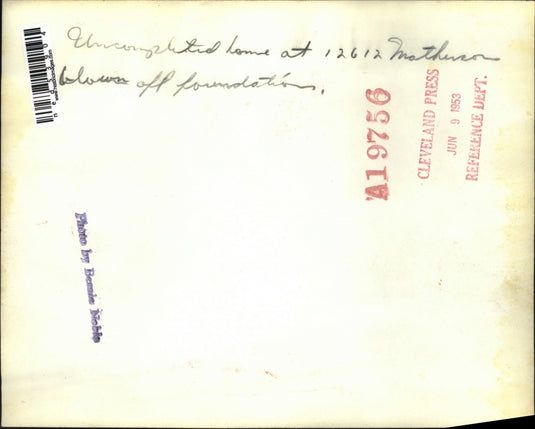 Uncompleted home at 12612 Matherson
blown off foundation.
A19756
CLEVELAND PRESS
JUN 9 1953
REFERENCE DEPT.
Photo by Bernie Noble